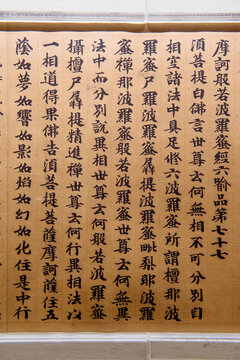 摩訶般若波羅蜜經六喻品第七十七
須菩提白佛言世尊云何無相不可分別自
相空諸法中具足修六波羅蜜所謂檀那波
羅蜜尸羅波羅蜜羼提波羅蜜毗梨耶波羅
蜜禪那波羅蜜般若波羅蜜世尊云何無異
法中而分別說異相世尊云何般若波羅蜜
攝檀尸羼提精進禪世尊云何行異相法以
一相道得果佛告須菩提菩薩摩訶薩住五
蔭如夢如響如影如焰如幻如化住是中行